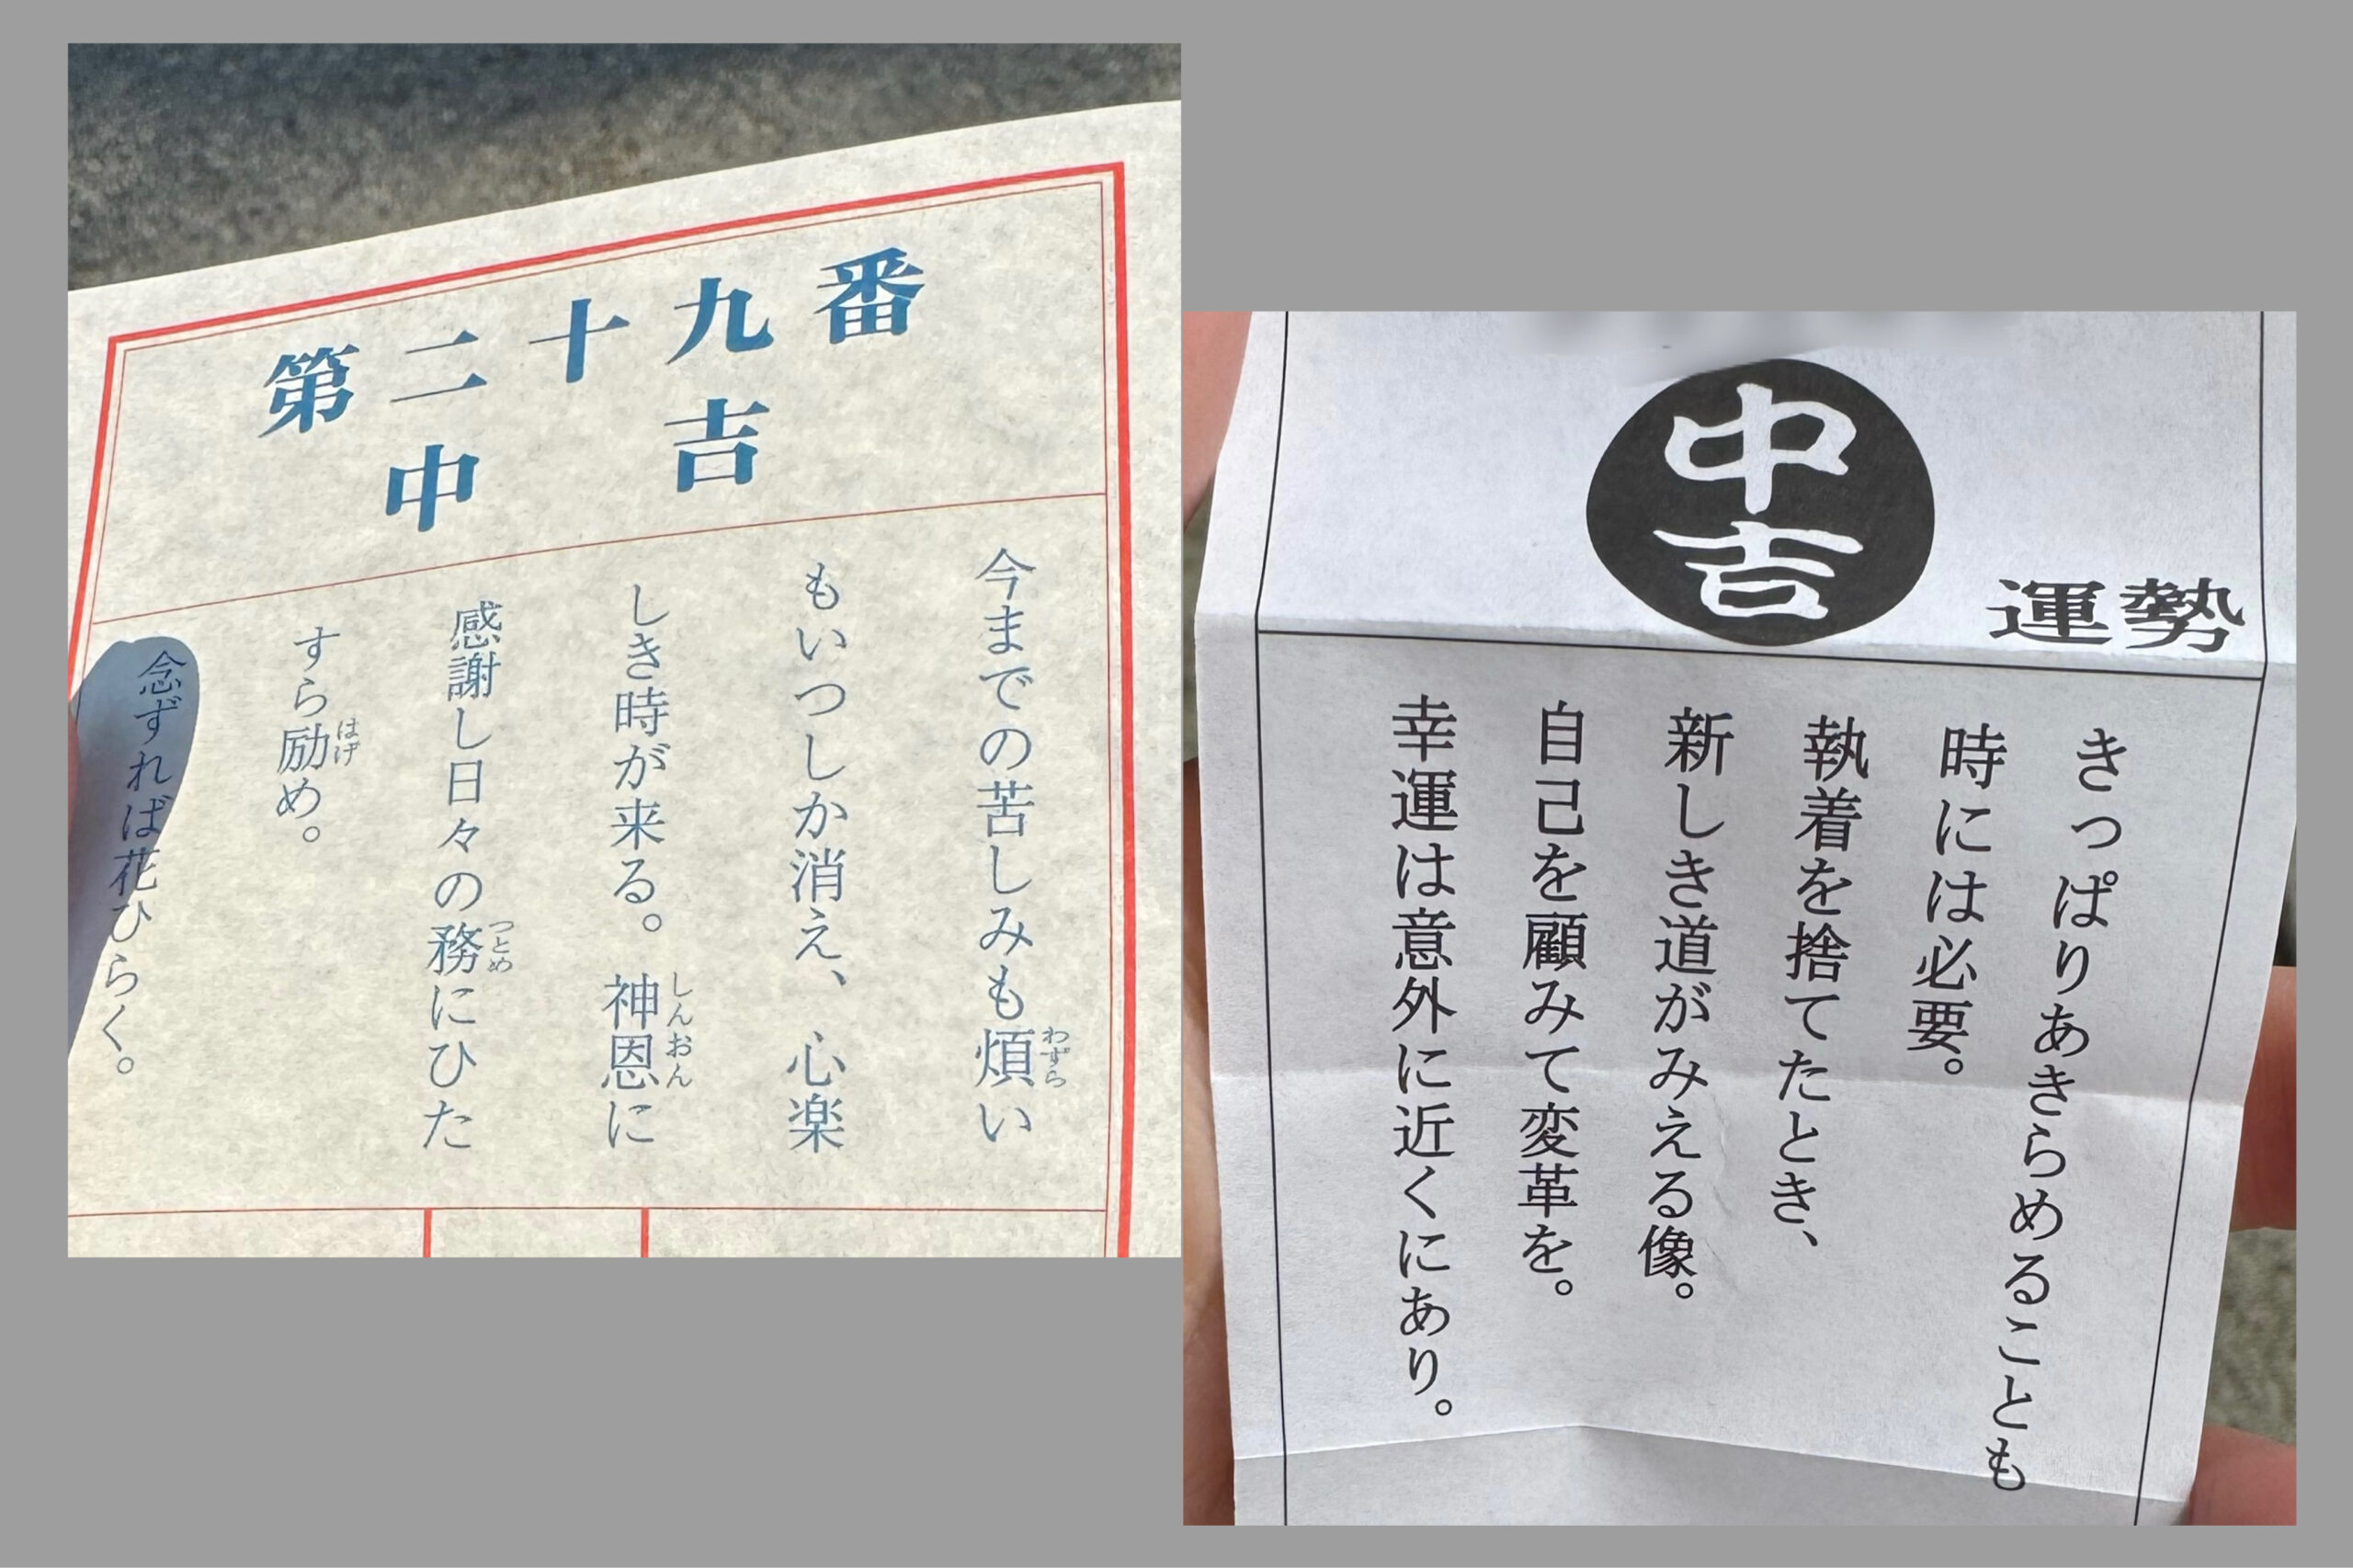 第二十九番
中吉
今までの苦しみも煩い
わずら
もいつしか消え、心楽
しき時が来る。神恩に
しんおん
感謝し日々の務にひた
つとめ
すら励め。
はげ
念ずれば花ひらく。
中吉
運勢
きっぱりあきらめることも
時には必要。
執着を捨てたとき、
新しき道がみえる像。
自己を顧みて変革を。
幸運は意外に近くにあり。